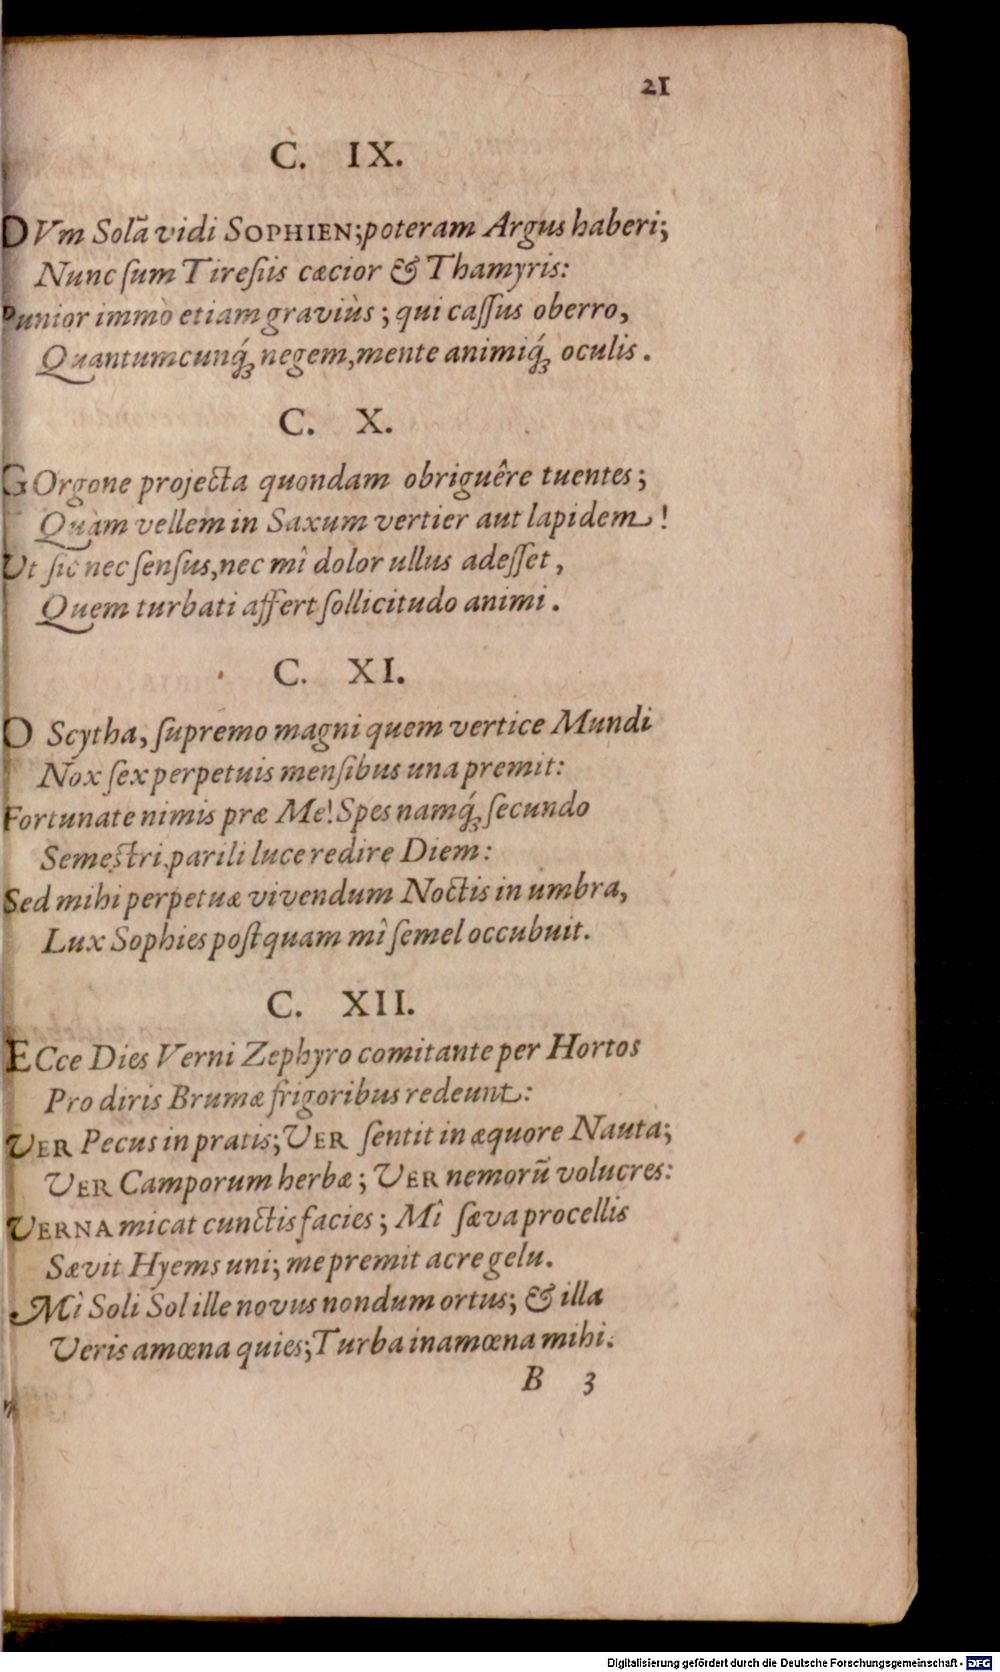 21
C. IX.
DVm Solã vidi SOPHIEN; poteram Argus haberi;
Nunc ſum Tireſiis cæcior & Thamyris:
Punior immò etiam graviùs; qui caſſus oberro,
Quantumcunq́; negem, mente animiq́; oculis.
C. X.
GOrgone projecta quondam obriguêre tuentes;
Quàm vellem in Saxum vertier aut lapidem!
Ut ſic nec ſenſus, nec mî dolor ullus adeſſet,
Quem turbati affert ſollicitudo animi.
C. XI.
O Scytha, ſupremo magni quem vertice Mundi
Nox ſex perpetuis menſibus una premit:
Fortunate nimis præ Me! Spes namq́; ſecundo
Semeſtri, parili luce redire Diem:
Sed mihi perpetuæ vivendum Noctis in umbra,
Lux Sophies poſtquam mî ſemel occubuit.
C. XII.
ECce Dies Verni Zephyro comitante per Hortos
Pro diris Brumæ frigoribus redeunt:
VER Pecus in pratis; VER ſentit in æquore Nauta;
VER Camporum herbæ; VER nemorũ volucres:
VERNA micat cunctis facies; Mî ſæva procellis
Sævit Hyems uni; me premit acre gelu.
Mî Soli Sol ille novus nondum ortus; & illa
Veris amœna quies; Turba inamœna mihi.
B 3
Digitalisierung gefördert durch die Deutsche Forschungsgemeinschaft - DFG